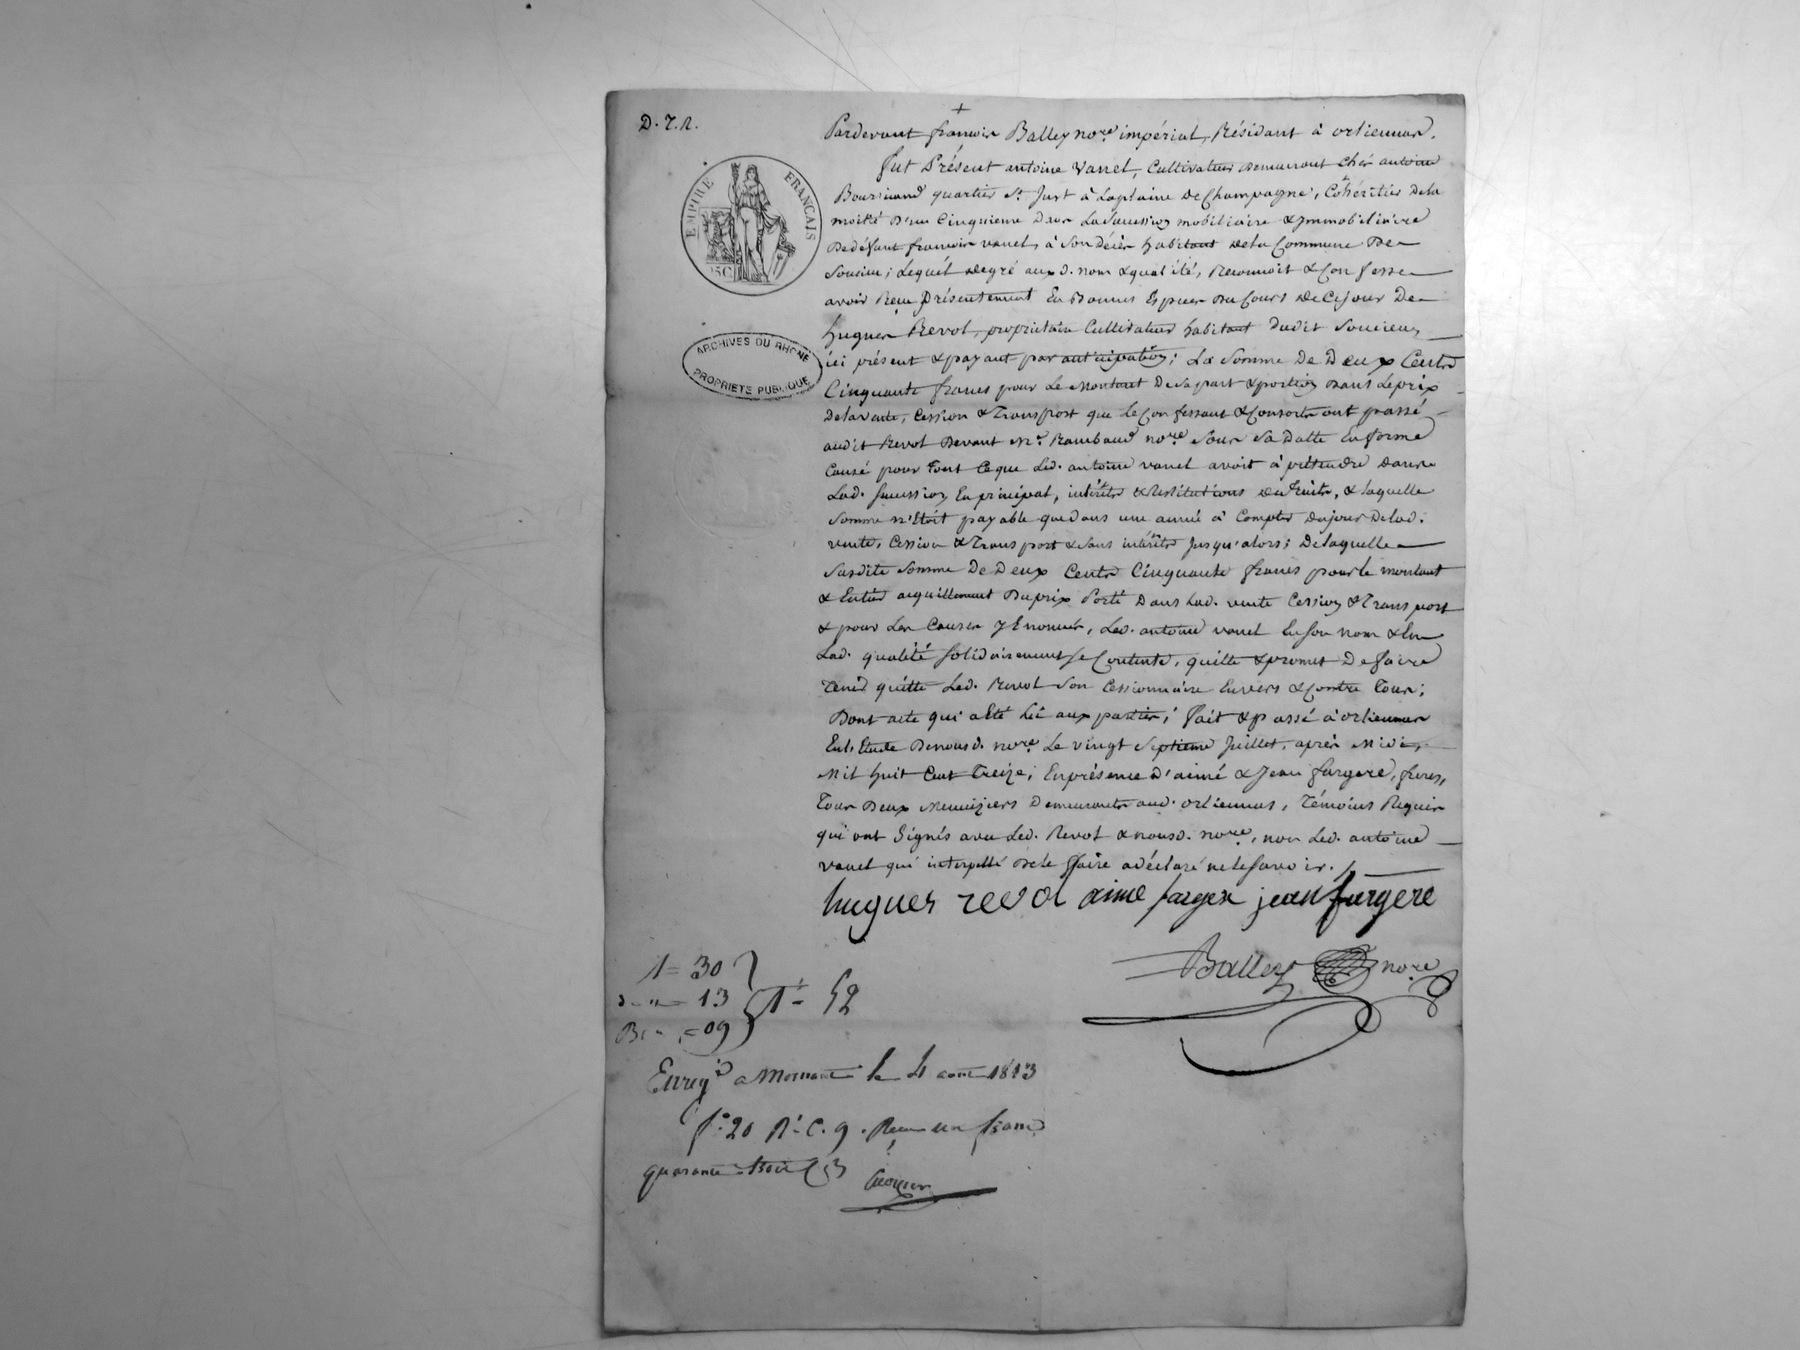 D. T. R.
Pardevant françois Balley no.re impérial, Résidant à orliennas.
fut Présent antoine Vanel, Cultivateur demeurant chés antoine
quartier St. Just à Laplaine de Champagne, Cohéritier dela
moitié d'un Cinquieme dans La Succession mobiliaire & Immobiliaire
de défunt françois vanel, à son décès habitant dela Commune De
Soucieu; Lequel degré aux d. nom & qualité, Reconnoit & Confesse
avoir Reçu présentement En Bonnes Espèces Du Cours de Cejour De
hugues Revol, propriétaire Cultivateur habitant dudit Soucieux
ici présent & payant par anticipation; La Somme De Deux Cents
Cinquante francs pour Le montant De sa part & portion Dans Leprix
delavente, Cession & Transport que le Confessant & Consorts ont passé
audit Revol Devant Me. Rambaud no.re Sous Sa Datte En forme
Causé pour tout Ceque Led. antoine vanel avoit à prétendre dans
Lad. Succession En principal, intérêts & Restitutions de fruits, & laquelle
Somme n'Etoit payable que dans une année à Compter dujour Delad.
vente, Cession & Transport & sans intérêts Jusqu'alors; De laquelle
Susdite Somme De Deux Cents Cinquante francs pour le montant
& Entier acquittement Du prix Porté Dans Lad. vente Cession & Transport
& pour Les Causes y Enoncées, Led. antoine vanel En son nom & En
Lad. qualité solidairement se Contente, quitte & promet De faire
Tenir quitte Led. Revol Son Cessionnaire Envers & Contre Tous;
Dont acte qui a Eté Lû aux parties; fait & passé à orlienas
En L'Etude De nousd. no.re Le vingt Septieme Juillet, après Midi,
Mil huit Cent Treize; En présence d'aimé & Jean fargere, freres,
Tous Deux Menuiziers Demeurants aud. orliennas, Témoins Requis
qui ont Signés avec Led. Revol & nousd. no.re, non Led. antoine
vanel qui interpellé De le faire a déclaré ne le Savoir.
hugues revol aimé fargere jean furgere
Balley no.re
EMPIRE FRANÇAIS
ARCHIVES DU RHONE
PROPRIETE PUBLIQUE
1 = 30
13
09
1 = 52
Enreg.é a Mornant le 4 aout 1813
f.o 20 R.o C. 9. Reçu un franc
quarante trois C.